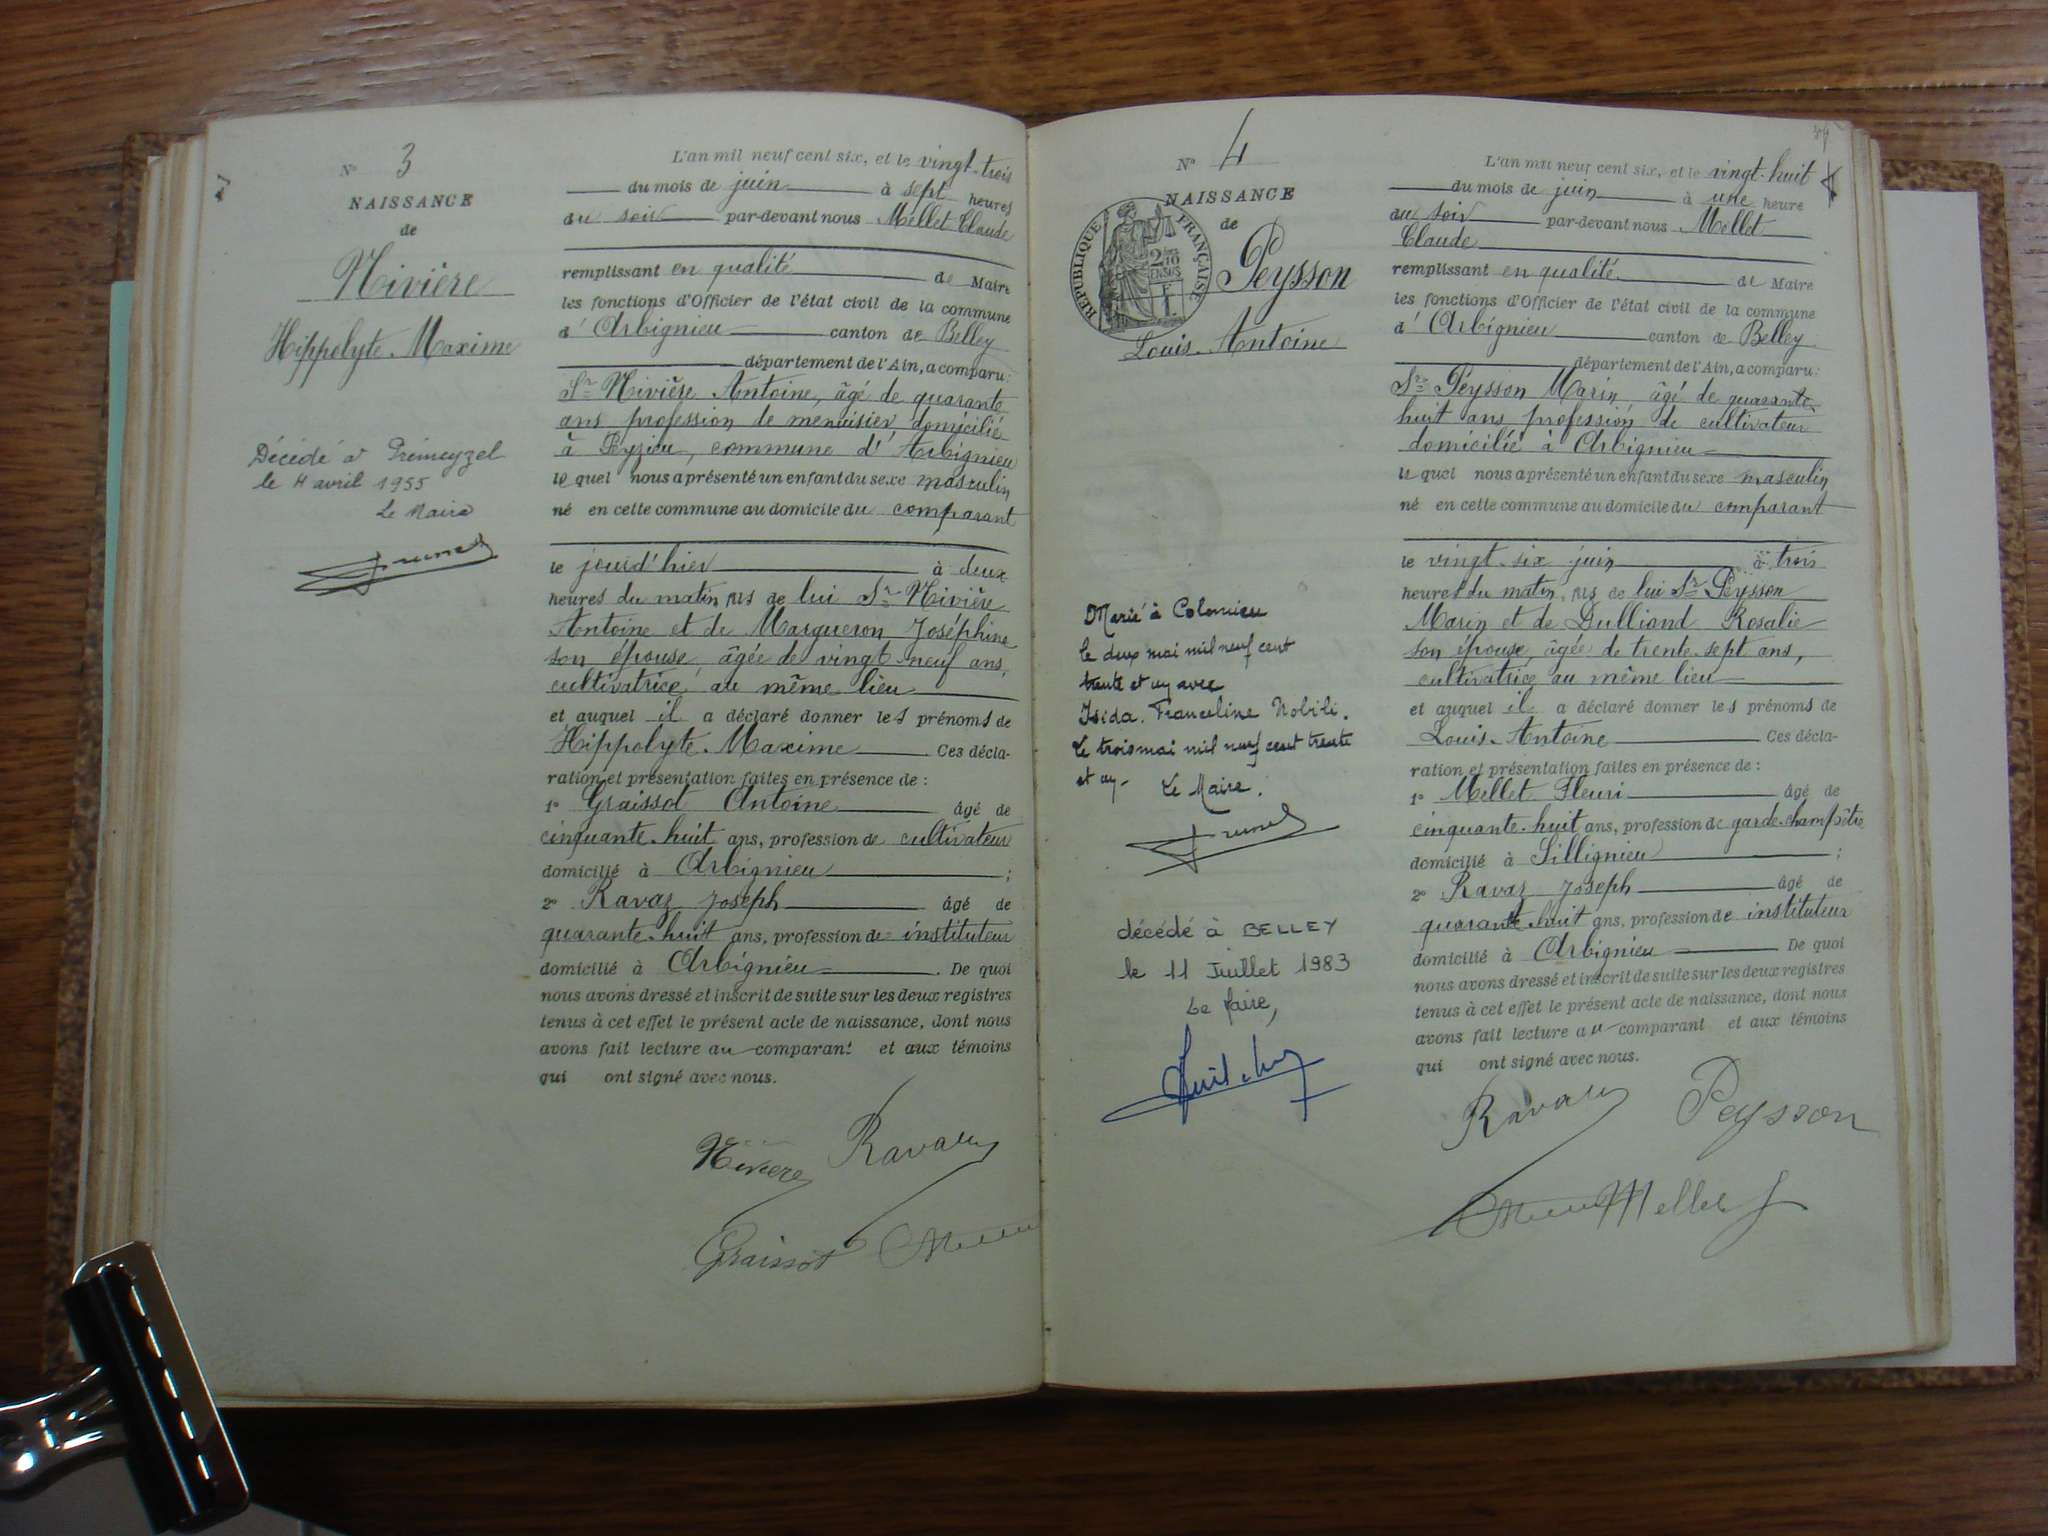 N° 3
NAISSANCE
de
Nivière
Hippolyte. Maxime
Décédé à Prémeyzel
le 4 avril 1955
Le Maire
L'an mil neuf cent six, et le vingt-trois
du mois de juin à sept heures
du soir par-devant nous Mellet Claude
remplissant en qualité de Maire
les fonctions d'Officier de l'état civil de la commune
d'Arbignieu canton de Belley
département de l'Ain, a comparu:
Sr Nivière Antoine, âgé de quarante
ans profession de menuisier domicilié
à Peyzieu, commune d'Arbignieu
lequel nous a présenté un enfant du sexe masculin
né en cette commune au domicile du comparant
le jourd'hier à deux
heures du matin, fils de lui Sr Nivière
Antoine et de Margueron Joséphine
son épouse, âgée de vingt-neuf ans,
cultivatrice au même lieu
et auquel il a déclaré donner les prénoms de
Hippolyte. Maxime Ces décla-
ration et présentation faites en présence de :
1° Graissot Antoine âgé de
cinquante-huit ans, profession de cultivateur
domicilié à Arbignieu ;
2° Ravaz Joseph âgé de
quarante-huit ans, profession de instituteur
domicilié à Arbignieu. De quoi
nous avons dressé et inscrit de suite sur les deux registres
tenus à cet effet le présent acte de naissance, dont nous
avons fait lecture au comparant et aux témoins
qui ont signé avec nous.
Nivière Ravaz
Graissot
N° 4
NAISSANCE
de
RÉPUBLIQUE FRANÇAISE
Peysson
Louis. Antoine
Marié à Colomieu
le deux mai mil neuf cent
trente et un avec
Isida. Franceline Nobili.
Le trois mai mil neuf cent trente
et un - Le Maire.
décédé à BELLEY
le 11 Juillet 1983
Le Maire,
L'an mil neuf cent six, et le vingt-huit
du mois de juin à une heure
du soir par-devant nous Mellet
Claude
remplissant en qualité de Maire
les fonctions d'Officier de l'état civil de la commune
d'Arbignieu canton de Belley
département de l'Ain, a comparu:
Sr Peysson Marin âgé de quarante-
huit ans profession de cultivateur
domicilié à Arbignieu
lequel nous a présenté un enfant du sexe masculin
né en cette commune au domicile du comparant
le vingt-six juin à trois
heures du matin, fils de lui Sr Peysson
Marin et de Dulliand Rosalie
son épouse, âgée de trente-sept ans,
cultivatrice au même lieu
et auquel il a déclaré donner les prénoms de
Louis-Antoine Ces décla-
ration et présentation faites en présence de :
1° Mellet Fleuri âgé de
cinquante-huit ans, profession de garde-champêtre
domicilié à Sillignieu ;
2° Ravaz Joseph âgé de
quarante-huit ans, profession de instituteur
domicilié à Arbignieu De quoi
nous avons dressé et inscrit de suite sur les deux registres
tenus à cet effet le présent acte de naissance, dont nous
avons fait lecture au comparant et aux témoins
qui ont signé avec nous.
Ravaz Peysson
Mellet